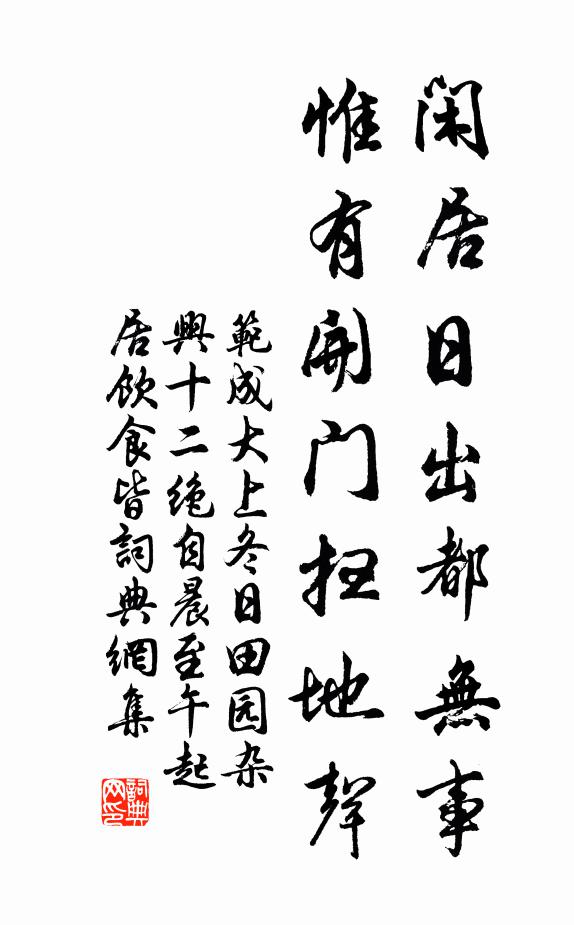 閑居日出都無事
惟有開门扫地聲
範成大上冬日田园杂
興十二绝自晨至午起
居飲食皆詞典網集
詞典
网印